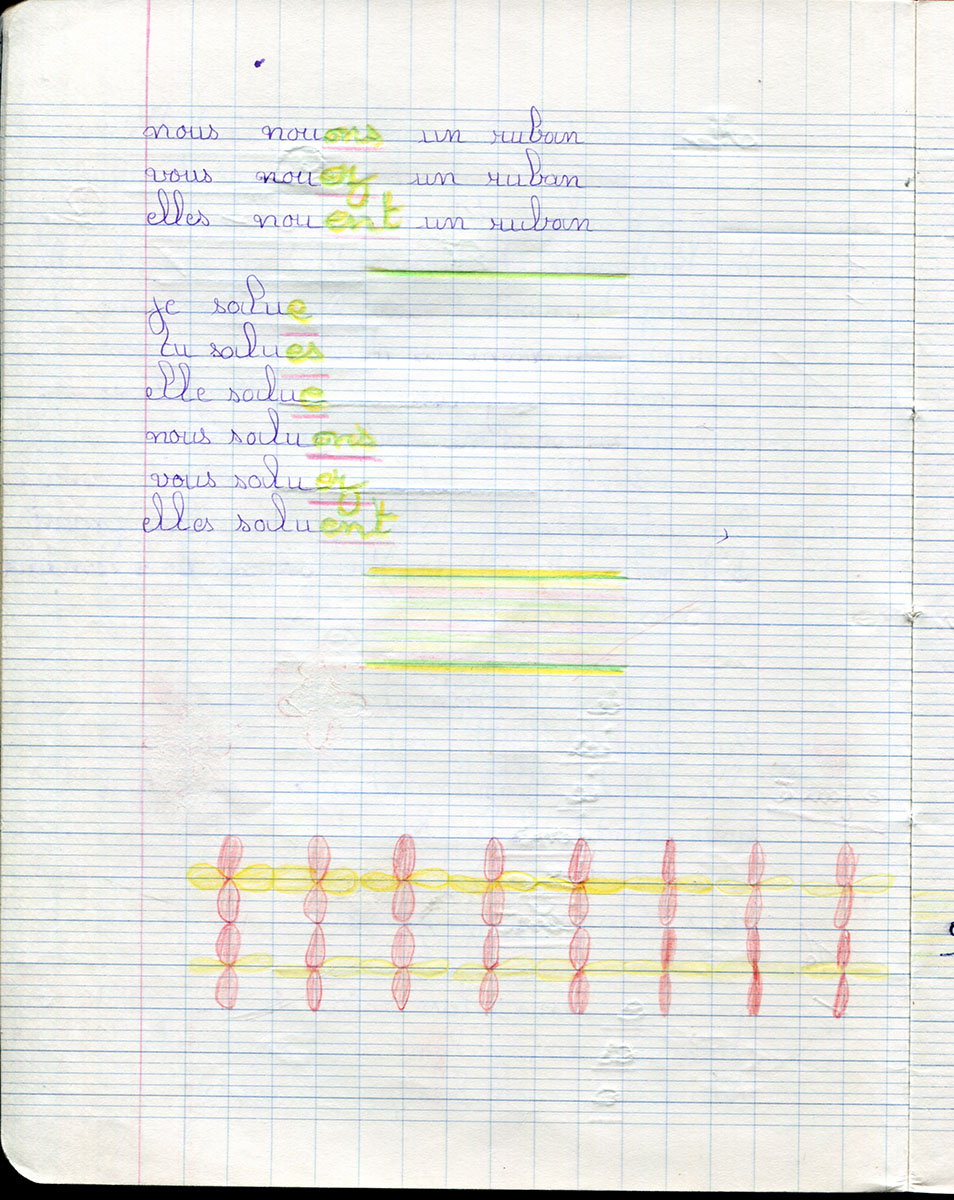 nous nouons un ruban
vous nouez un ruban
elles nouent un ruban
je salue
tu salues
elle salue
nous saluons
vous saluez
elles saluent